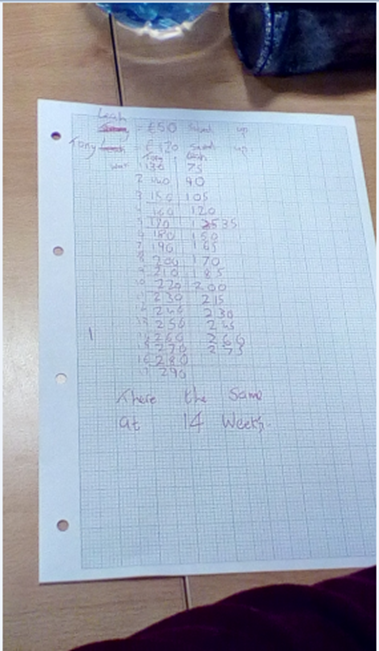 Leah
= £50 saved up
Tony = £120 saved up.
Tony Leah
130 75
2 140 90
3 150 105
4 160 120
170 135
6 180 150
7 190 165
8 200 170
9 210 185
10 220 200
11 230 215
12 240 230
13 250 245
14 260 260
15 270 275
16 280
17 290
There the Same
at 14 Weeks.